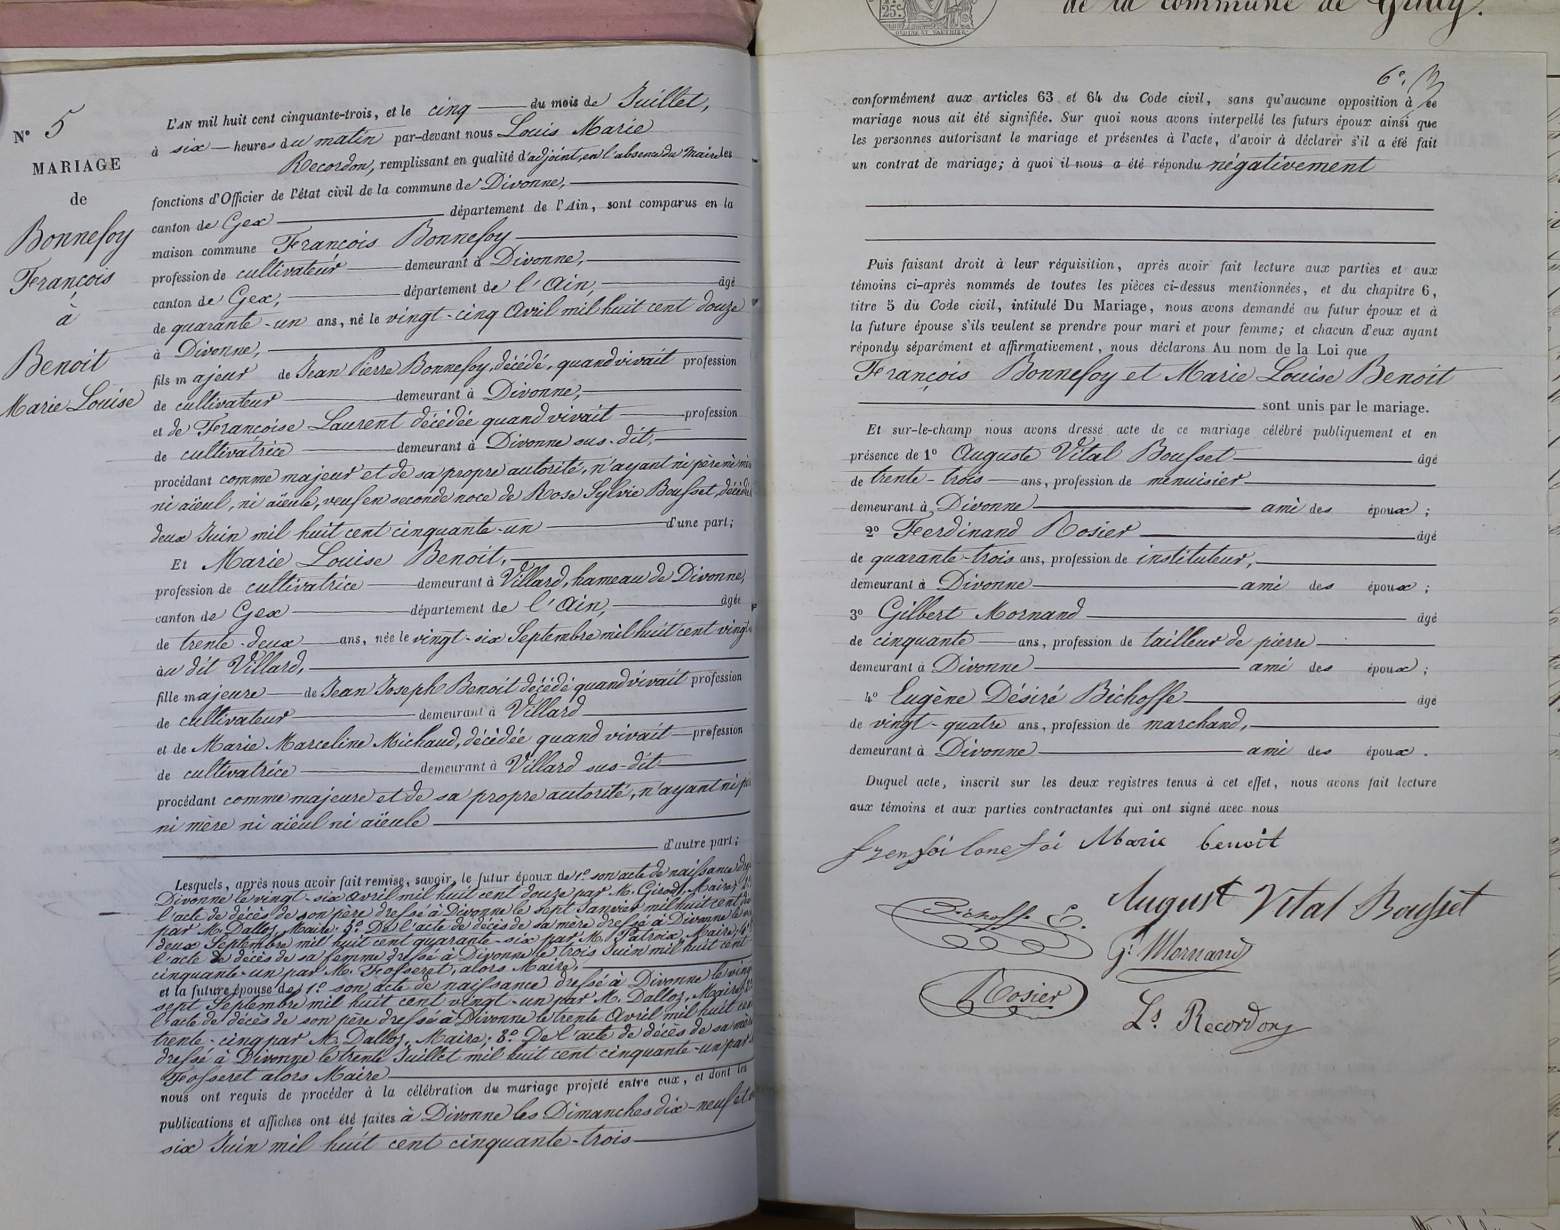 N° 5
MARIAGE
de
Bonnefoy
François
à
Benoit
Marie Louise
L'AN mil huit cent cinquante-trois, et le cinq du mois de Juillet,
à six heures du matin par-devant nous Louis Marie
Recordon, remplissant en qualité d'adjoint, en l'absence du Maire les
fonctions d'Officier de l'état civil de la commune de Divonne,
canton de Gex département de l'Ain, sont comparus en la
maison commune François Bonnefoy
profession de cultivateur demeurant à Divonne,
canton de Gex, département de l'Ain, âgé
de quarante-un ans, né le vingt-cinq Avril mil huit cent douze
à Divonne,
fils majeur de Jean Pierre Bonnefoy, décédé, quand vivait profession
de cultivateur demeurant à Divonne,
et de Françoise Laurent décédée quand vivait profession
de cultivatrice demeurant à Divonne sus-dit,
procédant comme majeur et de sa propre autorité, n'ayant ni père ni
ni aïeul, ni aïeule, veuf en seconde noce de Rose Sylvie Bousset, décédée
deux Juin mil huit cent cinquante-un d'une part;
Et Marie Louise Benoit,
profession de cultivatrice demeurant à Villard, hameau de Divonne,
canton de Gex département de l'Ain, âgée
de trente-deux ans, née le vingt-six Septembre mil huit cent vingt
au dit Villard,
fille majeure de Jean Joseph Benoit décédé quand vivait profession
de cultivateur demeurant à Villard
et de Marie Marceline Michaud, décédée quand vivait profession
de cultivatrice demeurant à Villard sus-dit
procédant comme majeure et de sa propre autorité, n'ayant ni
ni mère ni aïeul ni aïeule
d'autre part;
Lesquels, après nous avoir fait remise, savoir, le futur époux de 1° son acte de naissance
Divonne le vingt-six Avril mil huit cent douze par M. Girod, Maire;
l'acte de décès de son père dressé à Divonne le sept Janvier mil huit cent
par M. Dalloz, Maire; 3° De l'acte de décès de sa mère dressé à Divonne le
deux Septembre mil huit cent quarante-six par M. Patroix, Maire; 4°
l'acte de décès de sa femme dressé à Divonne le trois Juin mil huit cent
cinquante-un par M. Fosseret, alors Maire,
et la future épouse de 1° son acte de naissance dressé à Divonne le
sept Septembre mil huit cent vingt-un par M. Dalloz, Maire,
l'acte de décès de son père dressé à Divonne le trente Avril mil huit cent
trente-cinq par M. Dalloz, Maire; 3° De l'acte de décès de sa
dressé à Divonne le trente Juillet mil huit cent cinquante-un par
Fosseret alors Maire
nous ont requis de procéder à la célébration du mariage projeté entre eux, et dont les
publications et affiches ont été faites à Divonne les Dimanches dix-neuf et
six Juin mil huit cent cinquante-trois
de la commune de Grilly.
25c
conformément aux articles 63 et 64 du Code civil, sans qu'aucune opposition à ce
mariage nous ait été signifiée. Sur quoi nous avons interpellé les futurs époux ainsi que
les personnes autorisant le mariage et présentes à l'acte, d'avoir à déclarer s'il a été fait
un contrat de mariage; à quoi il nous a été répondu négativement
Puis faisant droit à leur réquisition, après avoir fait lecture aux parties et aux
témoins ci-après nommés de toutes les pièces ci-dessus mentionnées, et du chapitre 6,
titre 5 du Code civil, intitulé Du Mariage, nous avons demandé au futur époux et à
la future épouse s'ils veulent se prendre pour mari et pour femme; et chacun d'eux ayant
répondu séparément et affirmativement, nous déclarons Au nom de la Loi que
François Bonnefoy et Marie Louise Benoit
sont unis par le mariage.
Et sur-le-champ nous avons dressé acte de ce mariage célébré publiquement et en
présence de 1° Auguste Vital Bousset âgé
de trente-trois ans, profession de menuisier
demeurant à Divonne ami des époux;
2° Ferdinand Rosier âgé
de quarante-trois ans, profession de instituteur,
demeurant à Divonne ami des époux;
3° Gilbert Mornand âgé
de cinquante ans, profession de tailleur de pierre
demeurant à Divonne ami des époux;
4° Eugène Désiré Bichoffe âgé
de vingt-quatre ans, profession de marchand,
demeurant à Divonne ami des époux.
Duquel acte, inscrit sur les deux registres tenus à cet effet, nous avons fait lecture
aux témoins et aux parties contractantes qui ont signé avec nous
Marie benoit
August Vital Bousset
Bichoffe E.
G. Mornand
Rosier
Ls Recordon